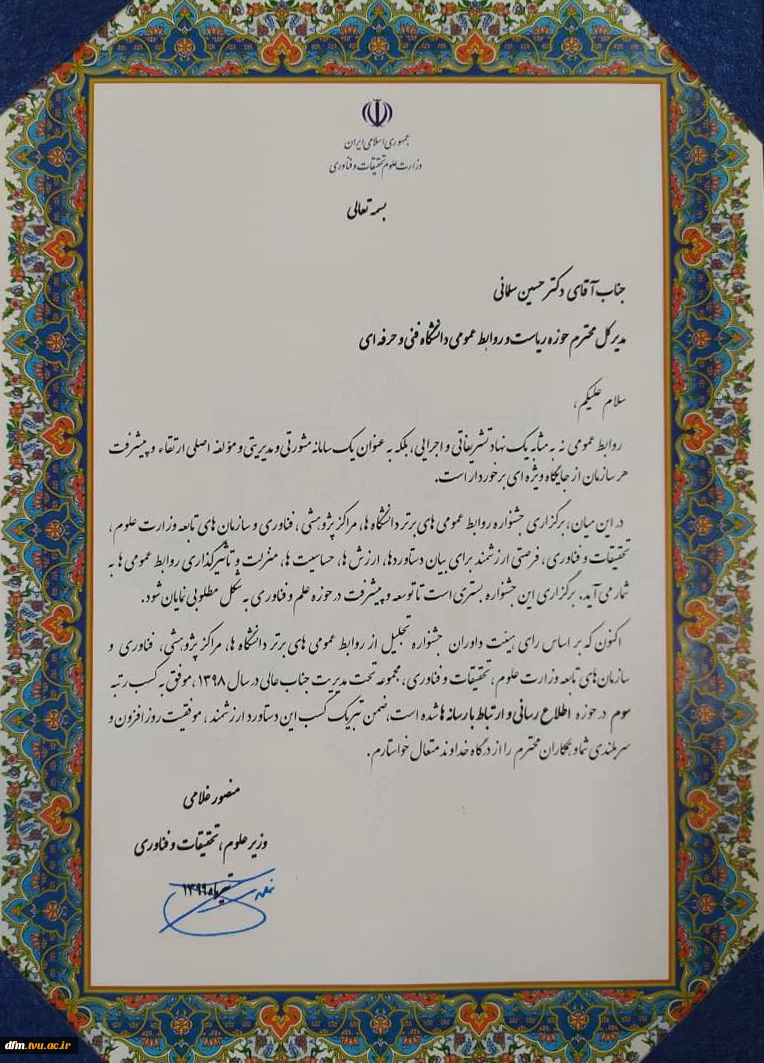 جمهوری اسلامی ایران
وزارت علوم تحقیقات و فناوری
بسمه تعالی
جناب آقای دکتر حسین سلمانی
مدیر کل محترم حوزه ریاست و روابط عمومی دانشگاه فنی و حرفه ای
سلام علیکم،
روابط عمومی نه به مثابه یک نهاد تشریفاتی و اجرایی، بلکه به عنوان یک سامانه مشورتی و مدیریتی و مؤلفه اصلی ارتقاء و پیشرفت
هر سازمان از جایگاه ویژه ای برخوردار است.
در این میان، برگزاری جشنواره روابط عمومی های برتر دانشگاه ها، مراکز پژوهشی، فناوری و سازمان های تابعه وزارت علوم،
تحقیقات و فناوری، فرصتی ارزشمند برای بیان دستاوردها، ارزش ها، حساسیت ها، منزلت و تأثیرگذاری روابط عمومی ها به
شمار می آید. برگزاری این جشنواره بستری است تا توسعه و پیشرفت در حوزه علم و فناوری به شکل مطلوبی نمایان شود.
اکنون که بر اساس رای هیئت داوران جشنواره تجلیل از روابط عمومی های برتر دانشگاه ها، مراکز پژوهشی، فناوری و
سازمان های تابعه وزارت علوم، تحقیقات و فناوری، مجموعه تحت مدیریت جناب عالی در سال ۱۳۹۸، موفق به کسب رتبه
سوم در حوزه اطلاع رسانی و ارتباط با رسانه ها شده است، ضمن تبریک کسب این دستاورد ارزشمند، موفقیت روز افزون و
سربلندی شما و همکاران محترم را از درگاه خداوند متعال خواستارم.
منصور غلامی
وزیر علوم، تحقیقات و فناوری
تیر ماه ۱۳۹۹
dfm.tvu.ac.ir